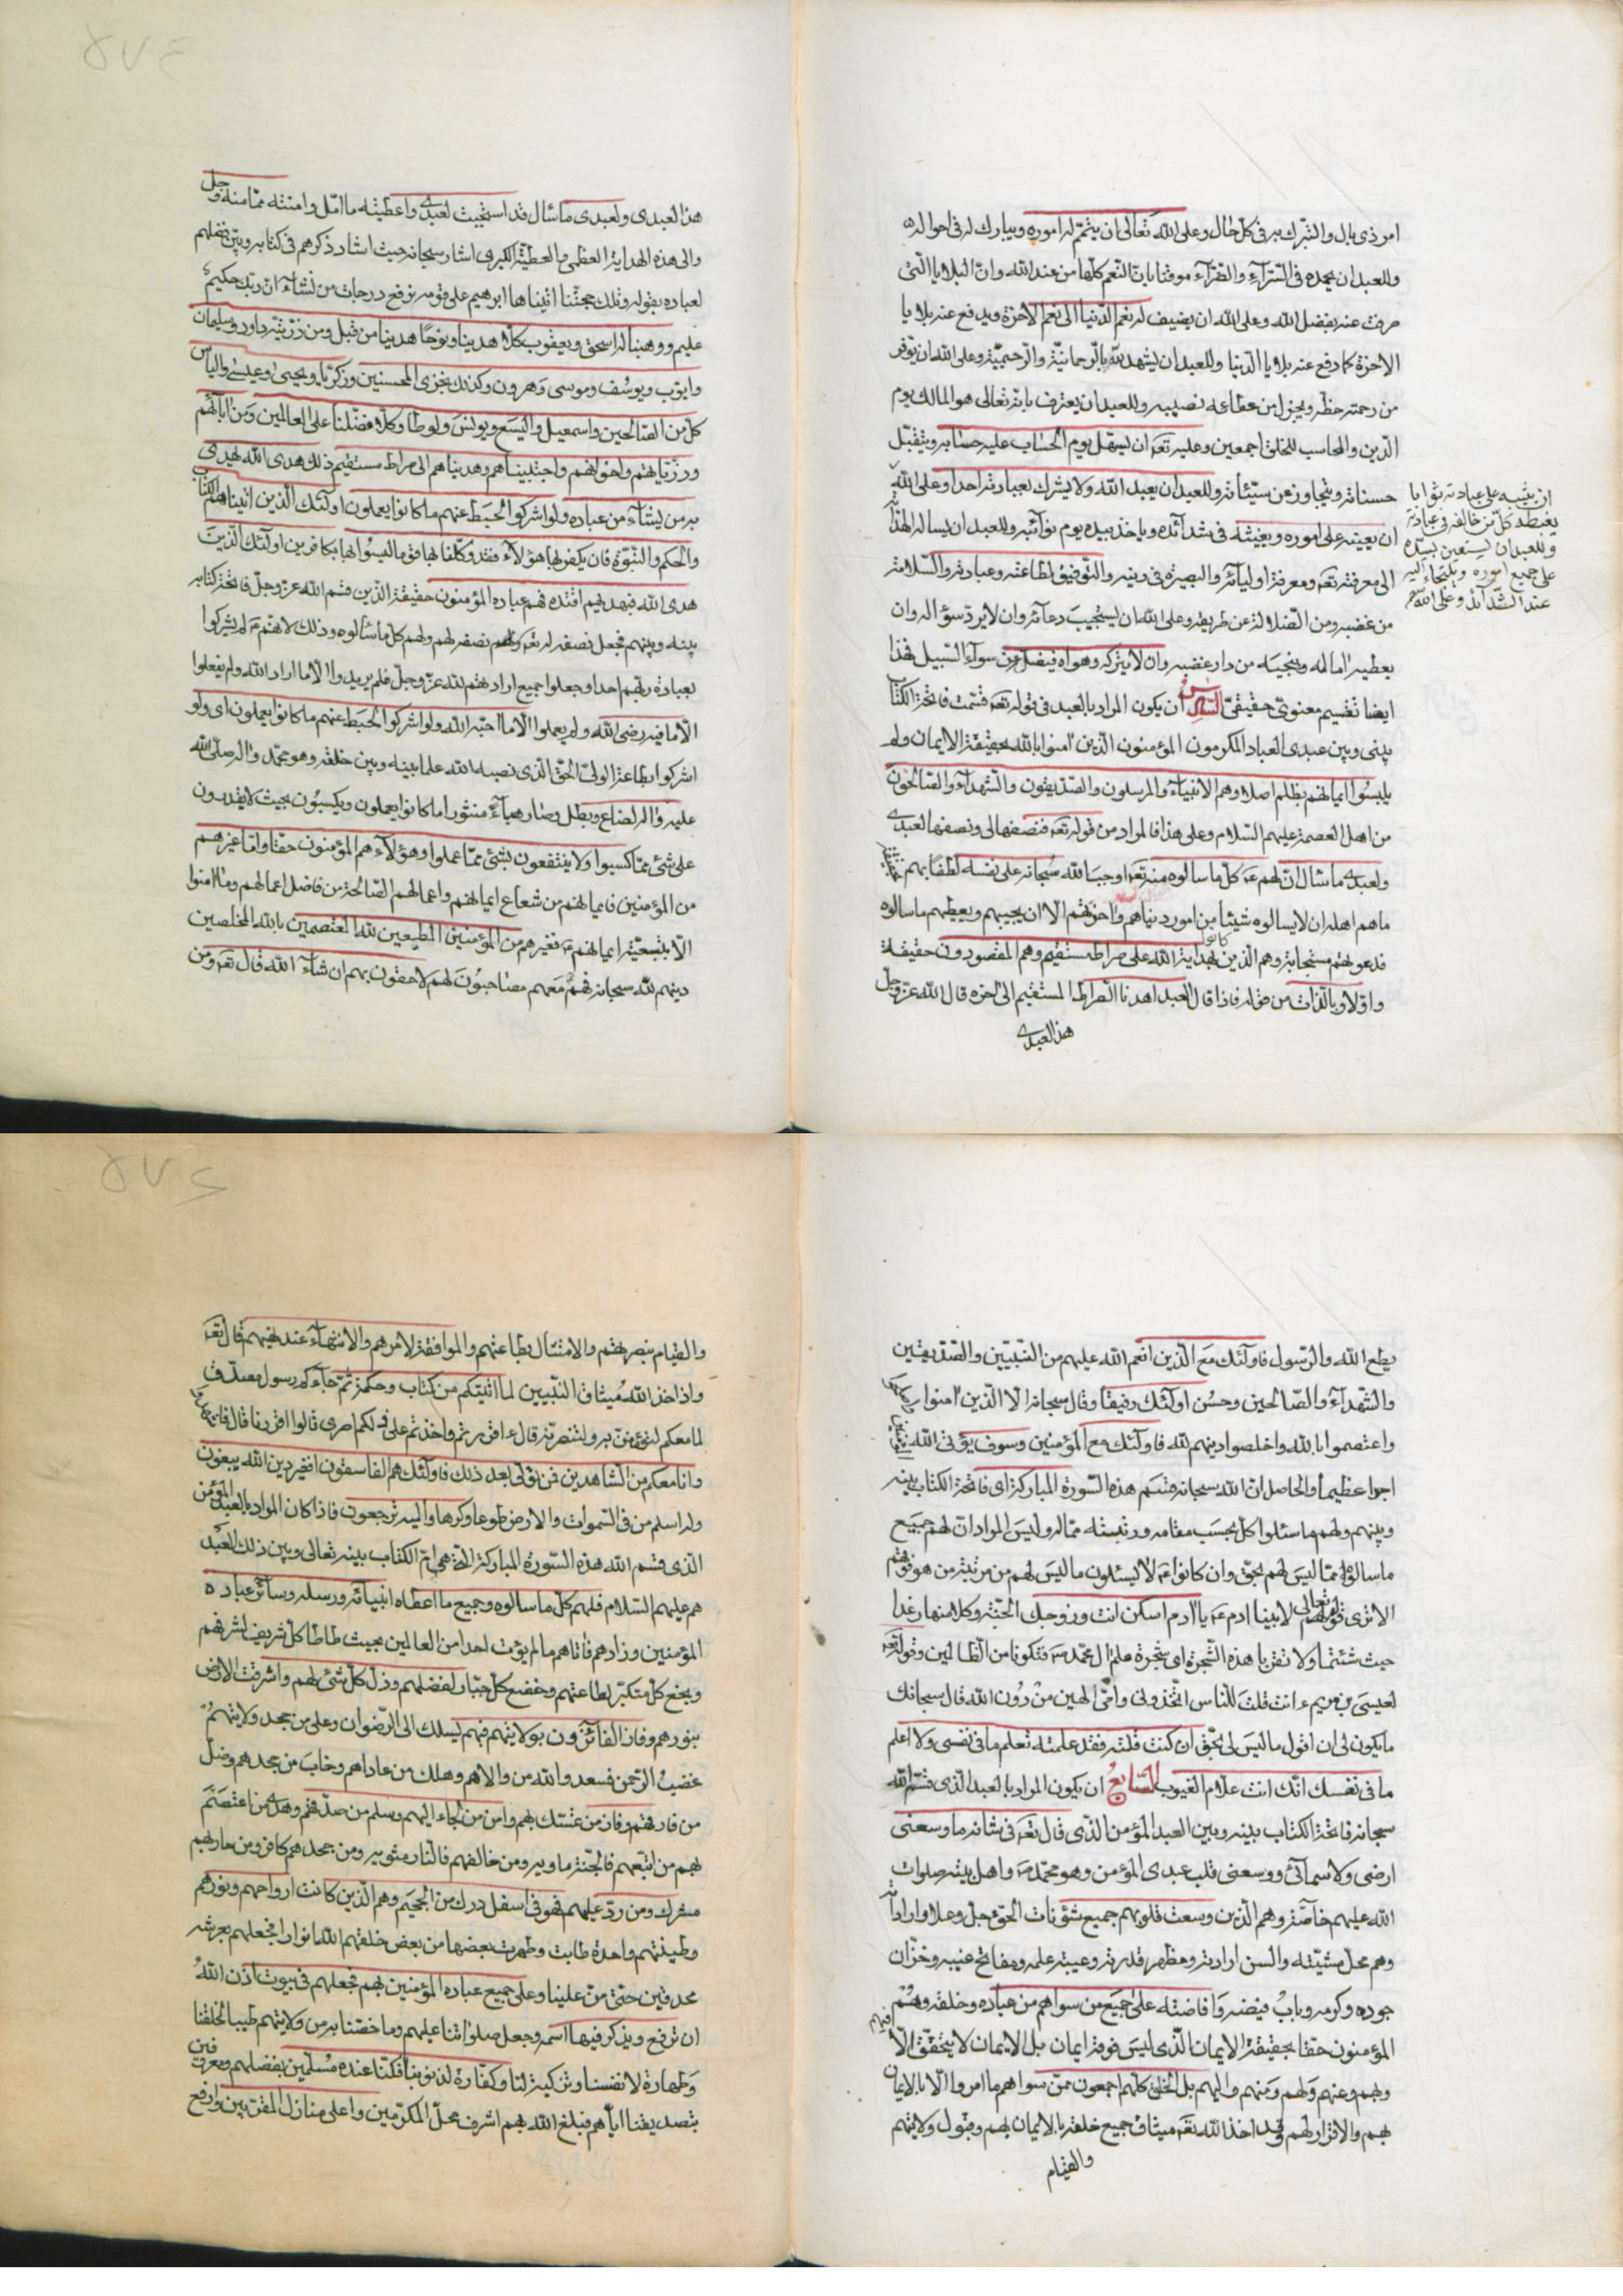 امر ذى بال والتبرك به فى كل حال وعلى الله تعالى ان يتمم له اموره ويبارك له فى احواله
وللعبد ان يحمده فى السّرّآء والضّرّآء موقنا بانّ النّعم كلّها من عند الله وانّ البلايا الّتى
صرفت عنه بفضل الله وعلى الله ان يضيف له نعم الدّنيا الى نعم الاخرة ويدفع عنه بلايا
الاخرة كما دفع عنه بلايا الدّنيا وللعبد ان يشهد لله بالرّحمانيّة والرّحيميّة وعلى الله ان يوفر
من رحمته حظّه ويجزل من عطائه نصيبه وللعبد ان يعترف بانّه تعالى هو المالك يوم
الدّين والمحاسب للخلق اجمعين وعليه تعه ان يسهّل يوم الحساب عليه حسابه ويتقبّل
حسناته ويتجاوز عن سيّئاته وللعبد ان يعبد الله ولا يشرك بعبادته احدا وعلى الله
ان يثيبه على عبادته ثوابا
يغبطه كلّ من خالفه فى عبادته
وللعبد ان يستعين بسيّده
على جميع اموره ويلتجاء اليه
عند الشّدآئد وعلى الله
ان يعينه على اموره ويغيثه فى شدآئده وياخذ بيده يوم نوآئبه وللعبد ان يساله الهداية
الى معرفته تعه ومعرفة اوليآئه والبصيرة فى دينه والتّوفيق لطاعته وعبادته والسّلامة
من غضبه ومن الضّلالة عن طريقه وعلى الله ان يستجيب دعآئه وان لا يردّ سؤاله وان
يعطيه اماله وينجيه من دار غضبه وان لا يتركه وهواه فيضل عن سوآء السّبيل فهذا
ايضا تقسيم معنوىّ حقيقىّ السّادس ان يكون المراد بالعبد فى قوله تعه قسّمت فاتحة الكتاب
بينى وبين عبدى العباد المكرمون المؤمنون الّذين امنوا بالله بحقيقة الايمان ولم
يلبسوا ايمانهم بظلم اصلا وهم الانبيآء والمرسلون والصّدّيقون والشّهدآء والصّالحون
من اهل العصمة عليهم السّلام وعلى هذا فالمراد من قوله تعه فنصفها لى ونصفها لعبدى
ولعبدى ما سال انّ لهم عه كلّ ما سالوه منه تعه اوجب الله سبحانه على نفسه لطفا بهم
ما هم اهله ان لا يسالوه شيئا من امور دنياهم واخرتهم الّا ان يجيبهم ويعطيهم ما سالوه
فدعوتهم مستجابة وهم الّذين كانوا بهداية الله على صراط مستقيم وهم المقصودون حقيقة
واوّلا وبالذّات من قوله فاذا قال العبد اهدنا الصّراط المستقيم الى اخره قال الله عزّ وجلّ
هذا لعبدى
هذا لعبدى ولعبدى ما سال قد استجبت لعبدى واعطيته ما امّل وامنته ممّا منه وجل
والى هذه الهداية العظمى والعطيّة الكبرى اشار سبحانه حيث اشاد ذكرهم فى كتابه وبيّن فضلهم
لعباده بقوله وتلك حجّتنا اتيناها ابرهيم على قومه نرفع درجات من نشآء انّ ربّك حكيم
عليم ووهبنا له اسحق ويعقوب كلّا هدينا ونوحًا هدينا من قبل ومن ذرّيّته داود وسليمان
وايّوب ويوسف وموسى وهرون وكذلك نجزى المحسنين وزكريّا ويحيى وعيسى والياس
كلّ من الصّالحين واسمعيل واليسع ويونس ولوطا وكلّا فضّلنا على العالمين ومن ابآئهم
وذرّيّاتهم واخوانهم واجتبيناهم وهديناهم الى صراط مستقيم ذلك هدى الله يهدى
به من يشآء من عباده ولو اشركوا لحبط عنهم ما كانوا يعملون اولئك الّذين اتيناهم الكتاب
والحكم والنّبوّة فان يكفر بها هؤلآء فقد وكّلنا بها قوما ليسوا بها بكافرين اولئك الّذين
هدى الله فبهديهم اقتده فهم عباده المؤمنون حقيقة الّذين قسم الله عزّ وجلّ فاتحة كتابه
بينه وبينهم فجعل نصفه له تعه ولهم نصفه لهم ولهم كلّ ما سألوه وذلك لانّهم عه لم يشركوا
بعبادة ربّهم احدا وجعلوا جميع اراداتهم لله عزّ وجلّ فلم يريدوا الّا ما اراد الله ولم يفعلوا
الّا ما فيه رضى الله ولم يعملوا الّا ما احبّه الله ولو اشركوا لحبط عنهم ما كانوا يعملون اى ولو
اشركوا بطاعة الولىّ الحقّ الّذى نصبه الله علما بينه وبين خلقه وهو محمّد واله صلّى الله
عليه واله لضاع وبطل وصار هبآء منثورا ما كانوا يعملون ويكسبون بحيث لا يقدرون
على شئ ممّا كسبوا ولا ينتفعون بشئ ممّا عملوا وهؤلآء هم المؤمنون حقّا وامّا غيرهم
من المؤمنين فايمانهم من شعاع ايمانهم واعمالهم الصّالحة من فاضل اعمالهم وما امنوا
الّا بتبعيّة ايمانهم عه فغيرهم من المؤمنين المطيعين لله المعتصمين بالله المخلصين
دينهم لله سبحانه فهم معهم مصاحبون لهم لاحقون بهم ان شآء الله قال تعه ومن
يطع الله والرّسول فاولئك مع الّذين انعم الله عليهم من النّبيّين والصّدّيقين
والشّهدآء والصّالحين وحسن اولئك رفيقا وقال سبحانه الّا الّذين امنوا
واعتصموا بالله واخلصوا دينهم لله فاولئك مع المؤمنين وسوف يؤتى الله المؤمنين
اجرا عظيما والحاصل انّ الله سبحانه قسم هذه السّورة المباركة اى فاتحة الكتاب بينه
وبينهم ولهم ما سئلوا كلّ بحسب مقامه ورتبته ممّا له وليس المراد انّ لهم جميع
ما سالوا ممّا ليس لهم بحقّ وان كانوا عه لا يسئلون ما ليس لهم من مرتبة من هو فوقهم
الا ترى قوله تعالى لابينا ادم عه يا ادم اسكن انت وزوجك الجنّة وكلا منها رغدا
حيث شئتما ولا تقربا هذه الشّجرة اى شجرة علم ال محمّد صه فتكونا من الظّالمين وقوله تعه
لعيسى بن مريم ءانت قلت للنّاس اتّخذونى وامّى الهين من دون الله قال سبحانك
ما يكون لى ان اقول ما ليس لى بحقّ ان كنت قلته فقد علمته تعلم ما فى نفسى ولا اعلم
ما فى نفسك انّك انت علّام الغيوب السّابع ان يكون المراد بالعبد الّذى قسّم الله
سبحانه فاتحة الكتاب بينه وبين العبد المؤمن الّذى قال تعه فى شانه ما وسعنى
ارضى ولا سمآئى ووسعنى قلب عبدى المؤمن وهو محمّد صه واهل بيته صلوات
الله عليهم خاصّة وهم الّذين وسعت قلوبهم جميع شؤنات الحقّ جلّ وعلا واراداته
وهم محلّ مشيّته والسن ارادته ومظهر قدرته وعيبة علمه ومفاتح غيبه وخزّان
جوده وكرمه وباب فيضه وافاضته على جميع من سواهم من عباده وخلقه وهم
المؤمنون حقّا بحقيقة الايمان الّذى ليس فوقه ايمان بل الايمان لا يتحقّق الّا
وبهم وعنهم ولهم ومنهم واليهم بل الخلق كلّهم اجمعون ممّن سواهم ما امروا الّا بالايمان
بهم والاقرار لهم وقد اخذ الله تعه ميثاق جميع خلقه بالايمان بهم وقبول ولايتهم
والقيام
والقيام بنصرتهم والامتثال بطاعتهم والموافقة لامرهم والانتهآء عند نهيهم قال تعه
واذ اخذ الله ميثاق النّبيّين لما اتيتكم من كتاب وحكمة ثمّ جآءكم رسول مصدّق
لما معكم لتؤمننّ به ولتنصرنّه قال ءاقررتم واخذتم على ذلكم اصرى قالوا اقررنا قال فاشهدوا
وانا معكم من الشّاهدين فمن تولّى بعد ذلك فاولئك هم الفاسقون افغير دين الله يبغون
وله اسلم من فى السّموات والارض طوعا وكرها واليه ترجعون فاذا كان المراد بالعبد المؤمن
الّذى قسم الله هذه السّورة المباركة الّتى هى امّ الكتاب بينه تعالى وبين ذلك العبد
هم عليهم السّلام فلهم كلّ ما سالوه وجميع ما اعطاه انبيآئه ورسله وسآئر عباده
المؤمنين وزادهم فاتاهم ما لم يؤت احدا من العالمين بحيث طاطا كلّ شريف لشرفهم
وبخع كلّ متكبّر لطاعتهم وخضع كلّ جبّار لفضلهم وذلّ كلّ شئ لهم واشرقت الارض
بنورهم وفاز الفآئزون بولايتهم فبهم يسلك الى الرّضوان وعلى من جحد ولايتهم
غضب الرّحمن فسعد والله من والاهم وهلك من عاداهم وخاب من جحدهم وضلّ
من فارقهم وفاز من تمسّك بهم وامن من لجاء اليهم وسلم من صدّقهم وهدى من اعتصم
بهم من اتّبعهم فالجنّة ماويه ومن خالفهم فالنّار مثويه ومن جحدهم كافر ومن حاربهم
مشرك ومن ردّ عليهم فهو فى اسفل درك من الجحيم وهم الّذين كانت ارواحهم ونورهم
وطينتهم واحدة طابت وطهرت بعضها من بعض خلقهم الله انوارا فجعلهم بعرشه
محدقين حتّى منّ علينا وعلى جميع عباده المؤمنين بهم فجعلهم فى بيوت اذن الله
ان ترفع ويذكر فيها اسمه وجعل صلواتنا عليهم وما خصّنا به من ولايتهم طيبا لخلقنا
وطهارة لانفسنا وتزكية لنا وكفّارة لذنوبنا فكنّا عنده مسلّمين بفضلهم ومعروفين
بتصديقنا ايّاهم فبلغ الله بهم اشرف محلّ المكرّمين واعلى منازل المقرّبين وارفع